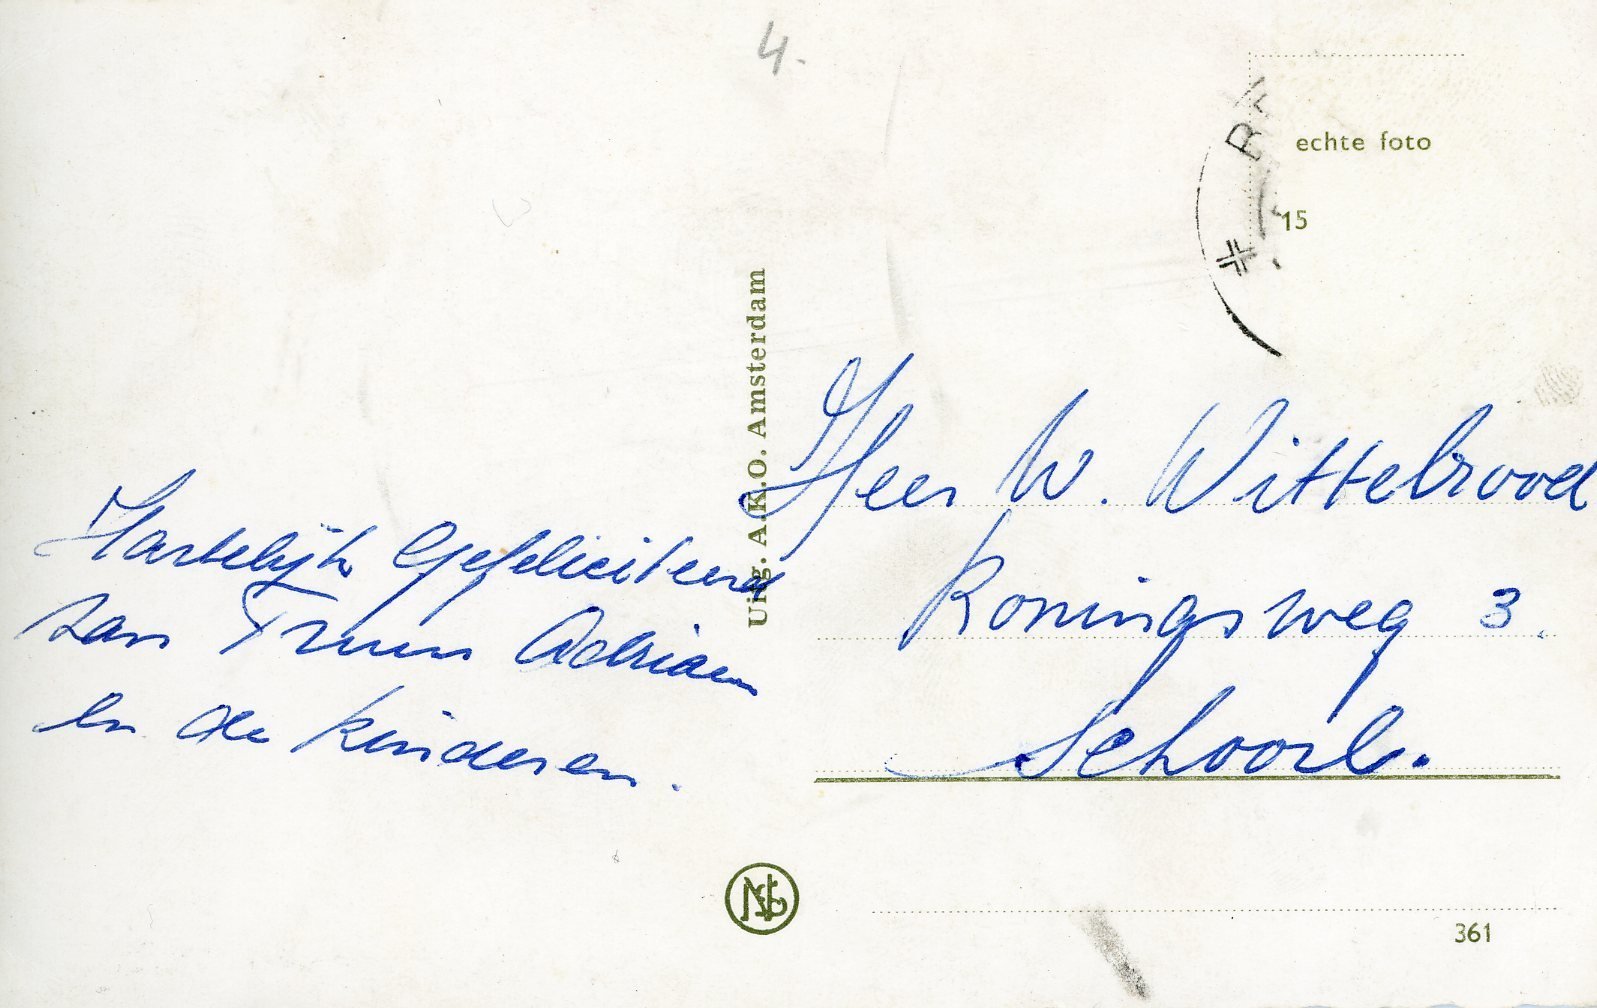 4.
echte foto
15
Uitg. A.K.O. Amsterdam
Hartelijk Gefeliciteerd
van Truus Adriaan
en de kinderen.
Heer W. Wittebrood
Koningsweg 3.
Schoorl.
361